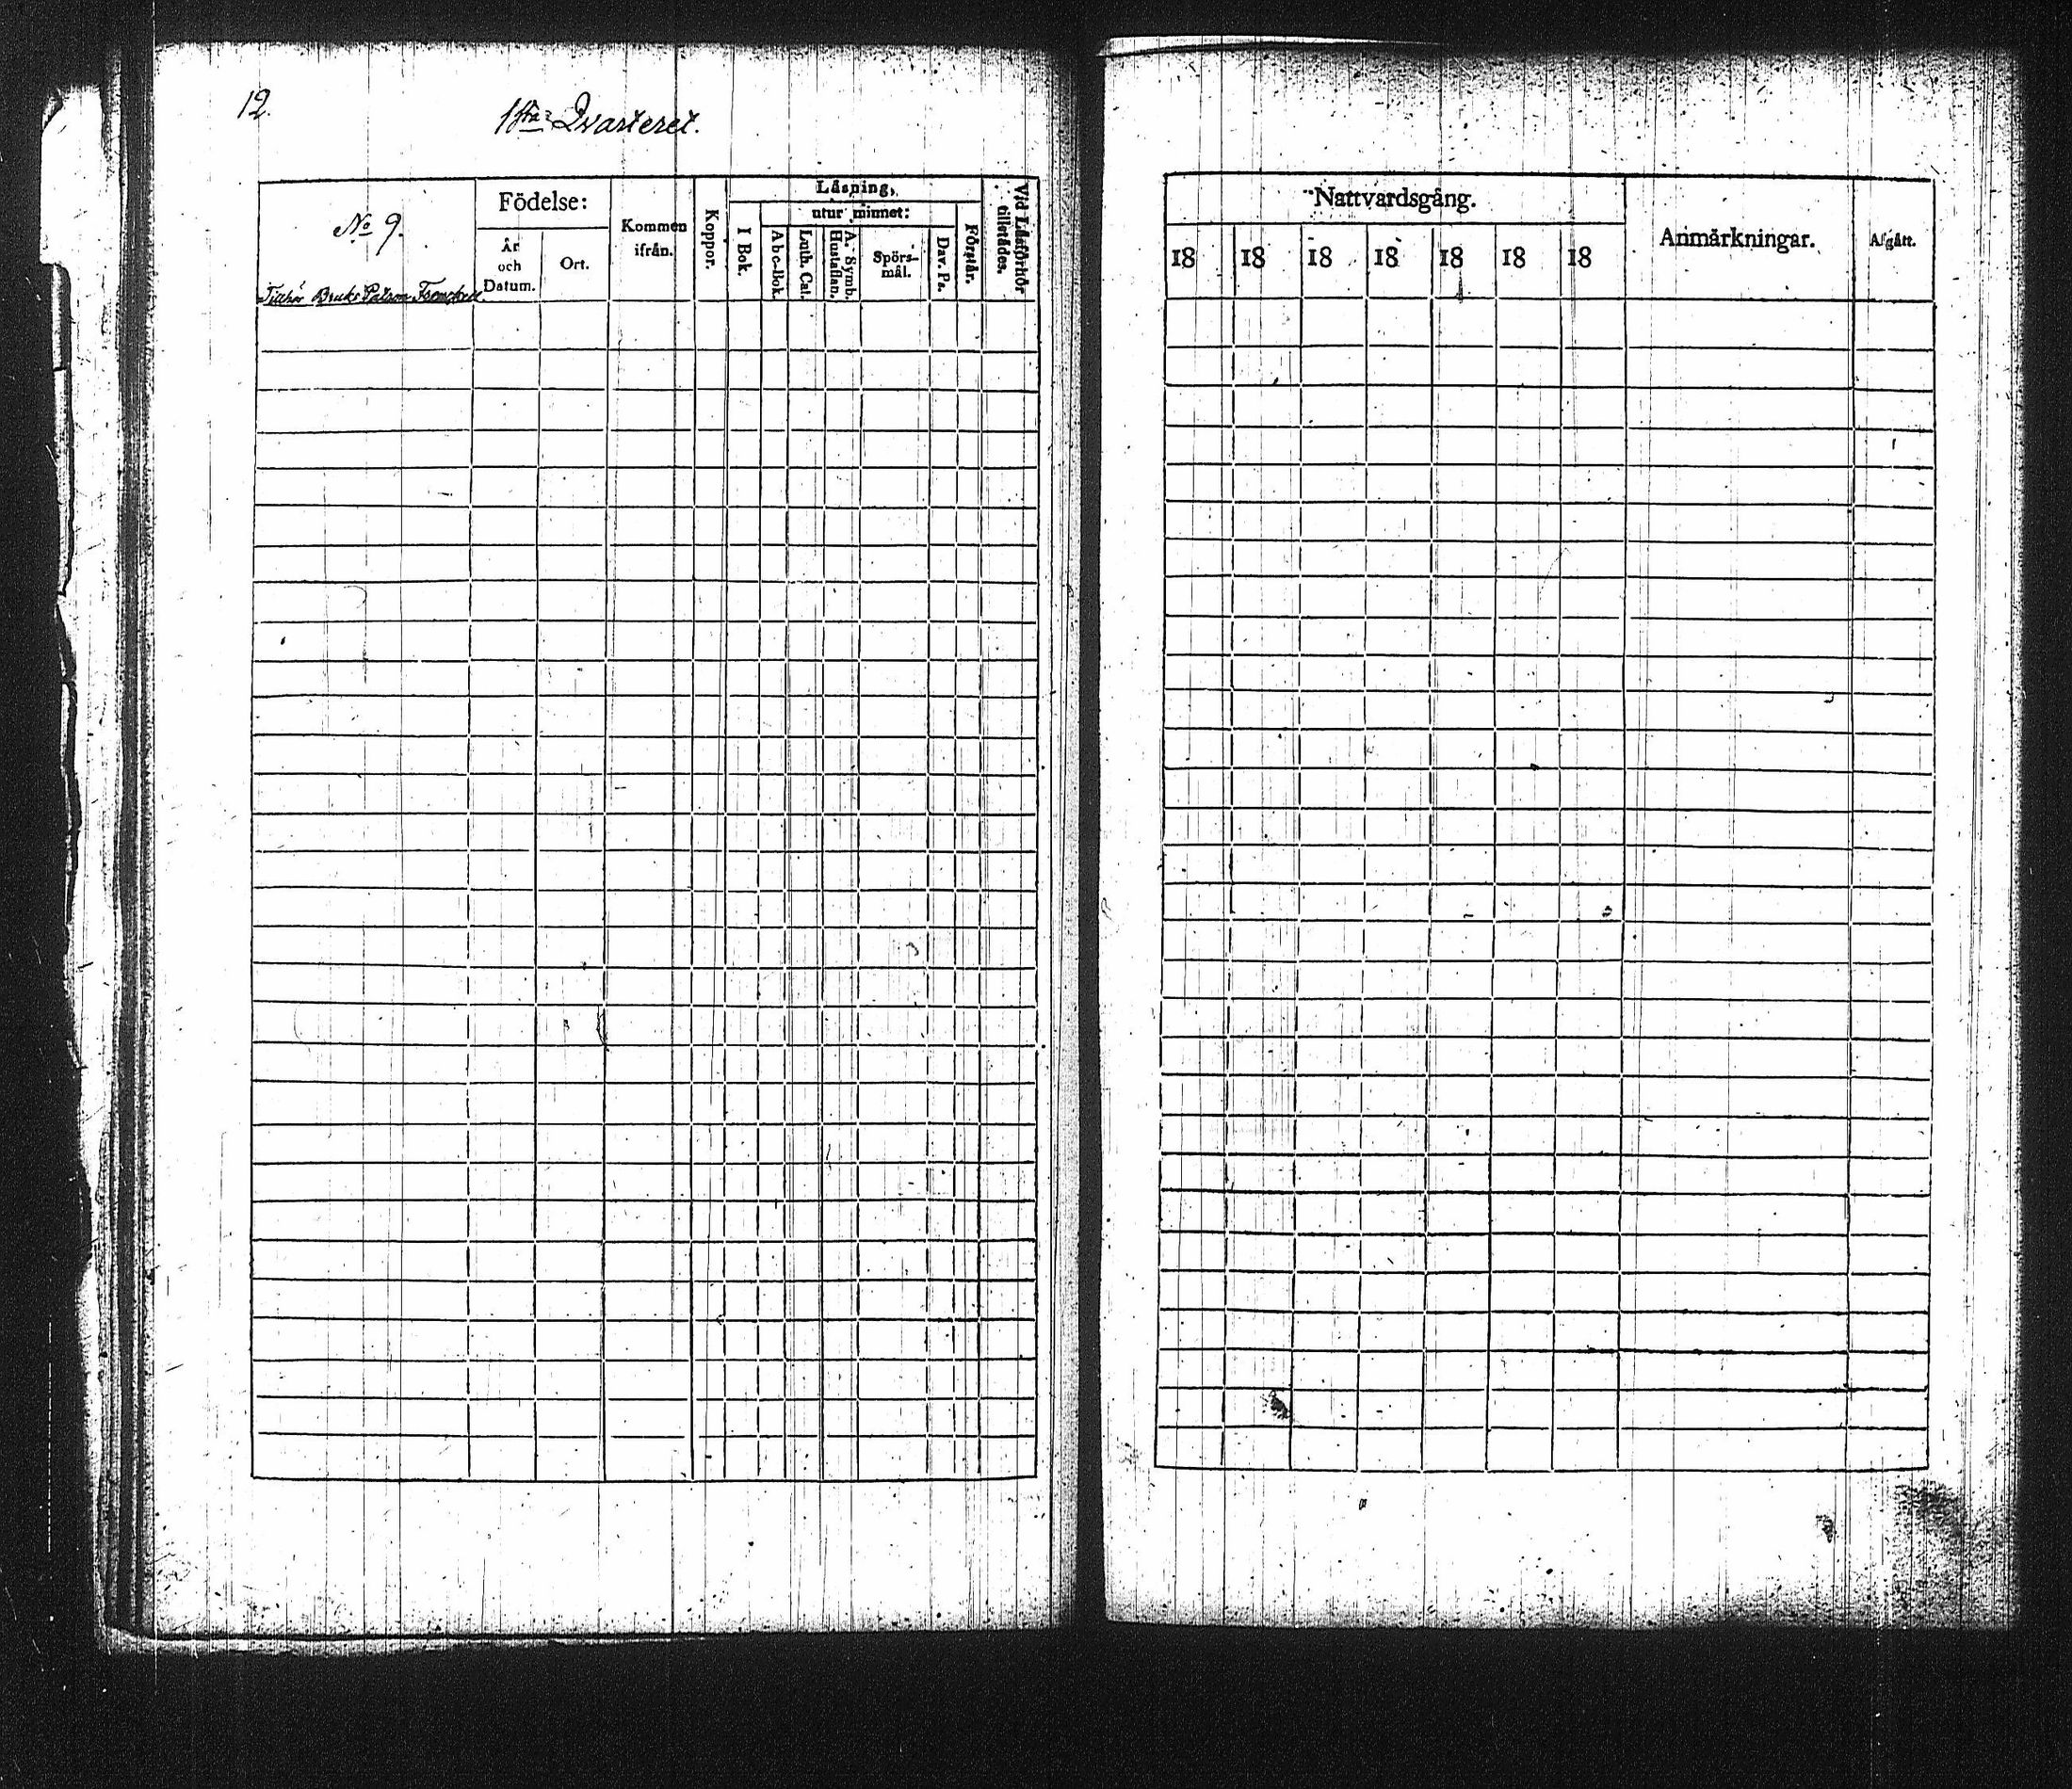 12.
1sta Qvarteret.
No 9.
Tillhör Bruks Patron Frenckell
Födelse:
År
och
Datum.
Ort.
Kommen
ifrån.
Koppor.
Läsning,
utur minnet:
I Bok.
Abc-Bok.
Luth. Cat.
A. Symb.
Hustaflan.
Spörs-
mål.
Dav. Ps.
Förstår.
Vid Läsförhör
tillstädes.
Nattvardsgång.
18 18 18 18 18 18 18
Anmärkningar.
Afgått.